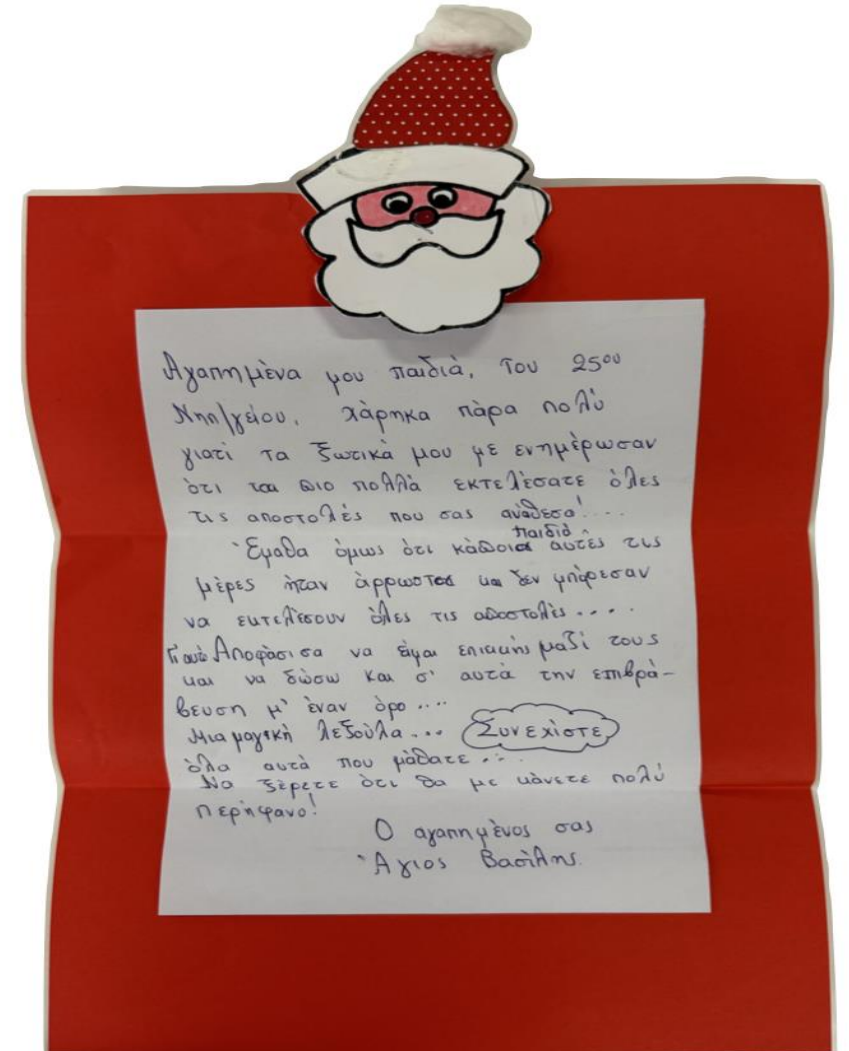 Αγαπημένα μου παιδιά, του 25ου
Νηπ/γείου, χάρηκα πάρα πολύ
γιατί τα ξωτικά μου με ενημέρωσαν
ότι τα πιο πολλά εκτελέσατε όλες
τις αποστολές που σας ανάθεσα!....
Έμαθα όμως ότι κάποια παιδιά αυτές τις
μέρες ήταν άρρωστα και δεν μπόρεσαν
να εκτελέσουν όλες τις αποστολές....
Γι αυτό Αποφάσισα να είμαι επιεικής μαζί τους
και να δώσω και σ' αυτά την επιβρά-
βευση μ' έναν όρο....
Μια μαγική λεξούλα... Συνεχίστε
όλα αυτά που μάθατε...
Να ξέρετε ότι θα με κάνετε πολύ
περήφανο!
Ο αγαπημένος σας
Άγιος Βασίλης.